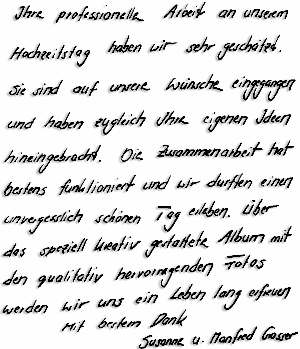 Ihre professionelle Arbeit an unserem
Hochzeitstag haben wir sehr geschätzt.
Sie sind auf unsere Wünsche eingegangen
und haben zugleich Ihre eigenen Ideen
hineingebracht. Die Zusammenarbeit hat
bestens funktioniert und wir durften einen
unvergesslich schönen Tag erleben. Über
das speziell kreativ gestaltete Album mit
den qualitativ hervorragenden Fotos
werden wir uns ein Leben lang erfreuen
Mit bestem Dank
Susanne u. Manfred Gasser